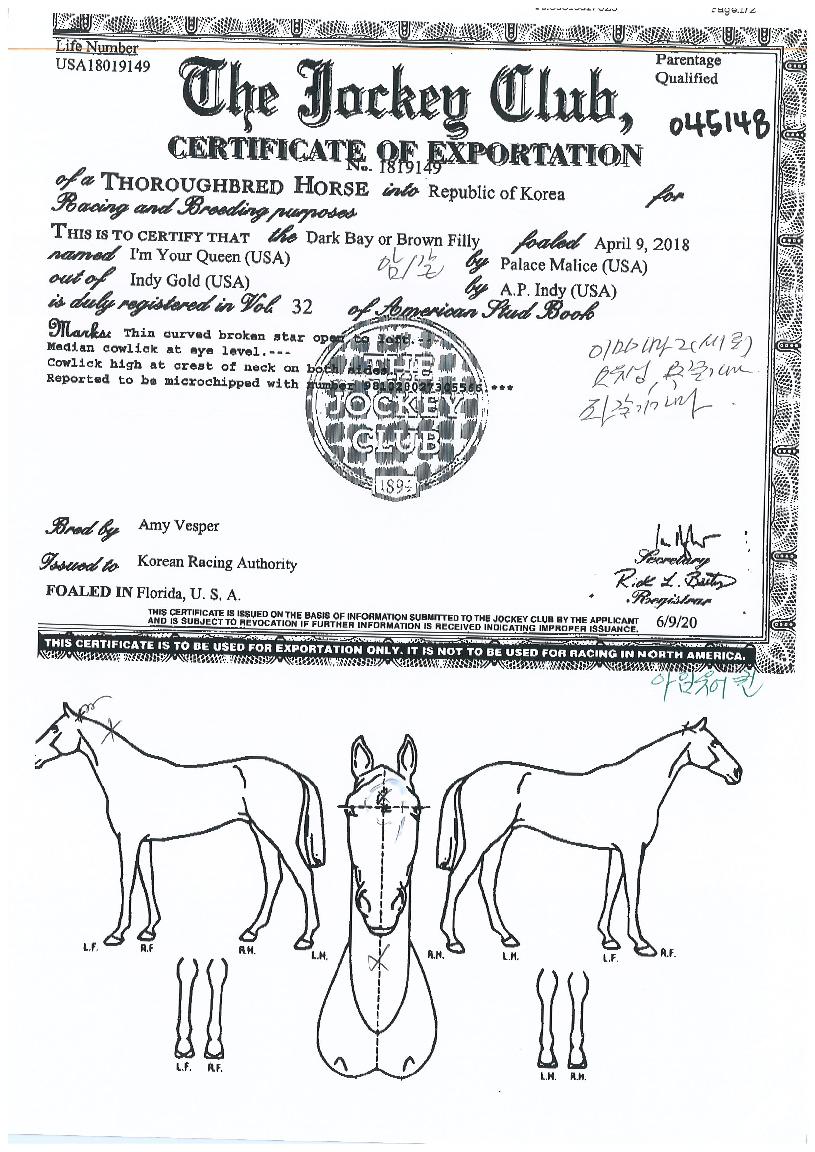 Page.1/2
Life Number
USA18019149
Parentage
Qualified
The Jockey Club,
045148
CERTIFICATE OF EXPORTATION
No. 1819149
of a THOROUGHBRED HORSE into Republic of Korea for
Racing and Breeding purposes
THIS IS TO CERTIFY THAT the Dark Bay or Brown Filly foaled April 9, 2018
named I'm Your Queen (USA) by Palace Malice (USA)
out of Indy Gold (USA) by A.P. Indy (USA)
is duly registered in Vol. 32 of American Stud Book
Marks: Thin curved broken star open to left.---
Median cowlick at eye level.---
Cowlick high at crest of neck on both sides.
Reported to be microchipped with number 981020027305566.***
THE
JOCKEY
CLUB
1894
Bred by Amy Vesper
Issued to Korean Racing Authority
Secretary
FOALED IN Florida, U. S. A.
Registrar
THIS CERTIFICATE IS ISSUED ON THE BASIS OF INFORMATION SUBMITTED TO THE JOCKEY CLUB BY THE APPLICANT
AND IS SUBJECT TO REVOCATION IF FURTHER INFORMATION IS RECEIVED INDICATING IMPROPER ISSUANCE.
6/9/20
THIS CERTIFICATE IS TO BE USED FOR EXPORTATION ONLY. IT IS NOT TO BE USED FOR RACING IN NORTH AMERICA.
아임유어퀸
L.F. R.F R.H. L.H. R.H. L.H. L.F. R.F.
L.F. R.F. L.H. R.H.